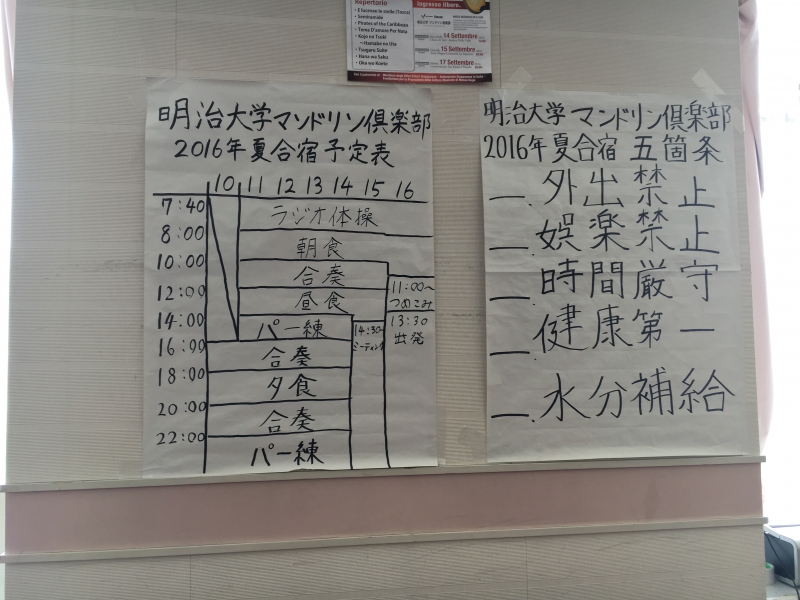 Repertorio
E lucevan le stelle (Tosca)
Semiramide
Pirates of the Caribbean
Torna D'amore Per Noia
Kojo no Tsuki
Hamabe no Uta
Tsugaru Suite
Hana wa Saku
Oka wo Koete
Ingresso libero.
14 Settembre
15 Settembre
17 Settembre
明治大学マンドリン倶楽部
2016年夏合宿予定表
10 11 12 13 14 15 16
7:40 ラジオ体操
8:00 朝食
10:00 合奏
11:00~
つめこみ
12:00 昼食
13:30
出発
14:00 パー練
14:30~
ミーティング
16:00 合奏
18:00 夕食
20:00 合奏
22:00 パー練
明治大学 マンドリン倶楽部
2016年夏合宿 五箇条
一.外出禁止
一.娯楽禁止
一.時間厳守
一.健康第一
一.水分補給